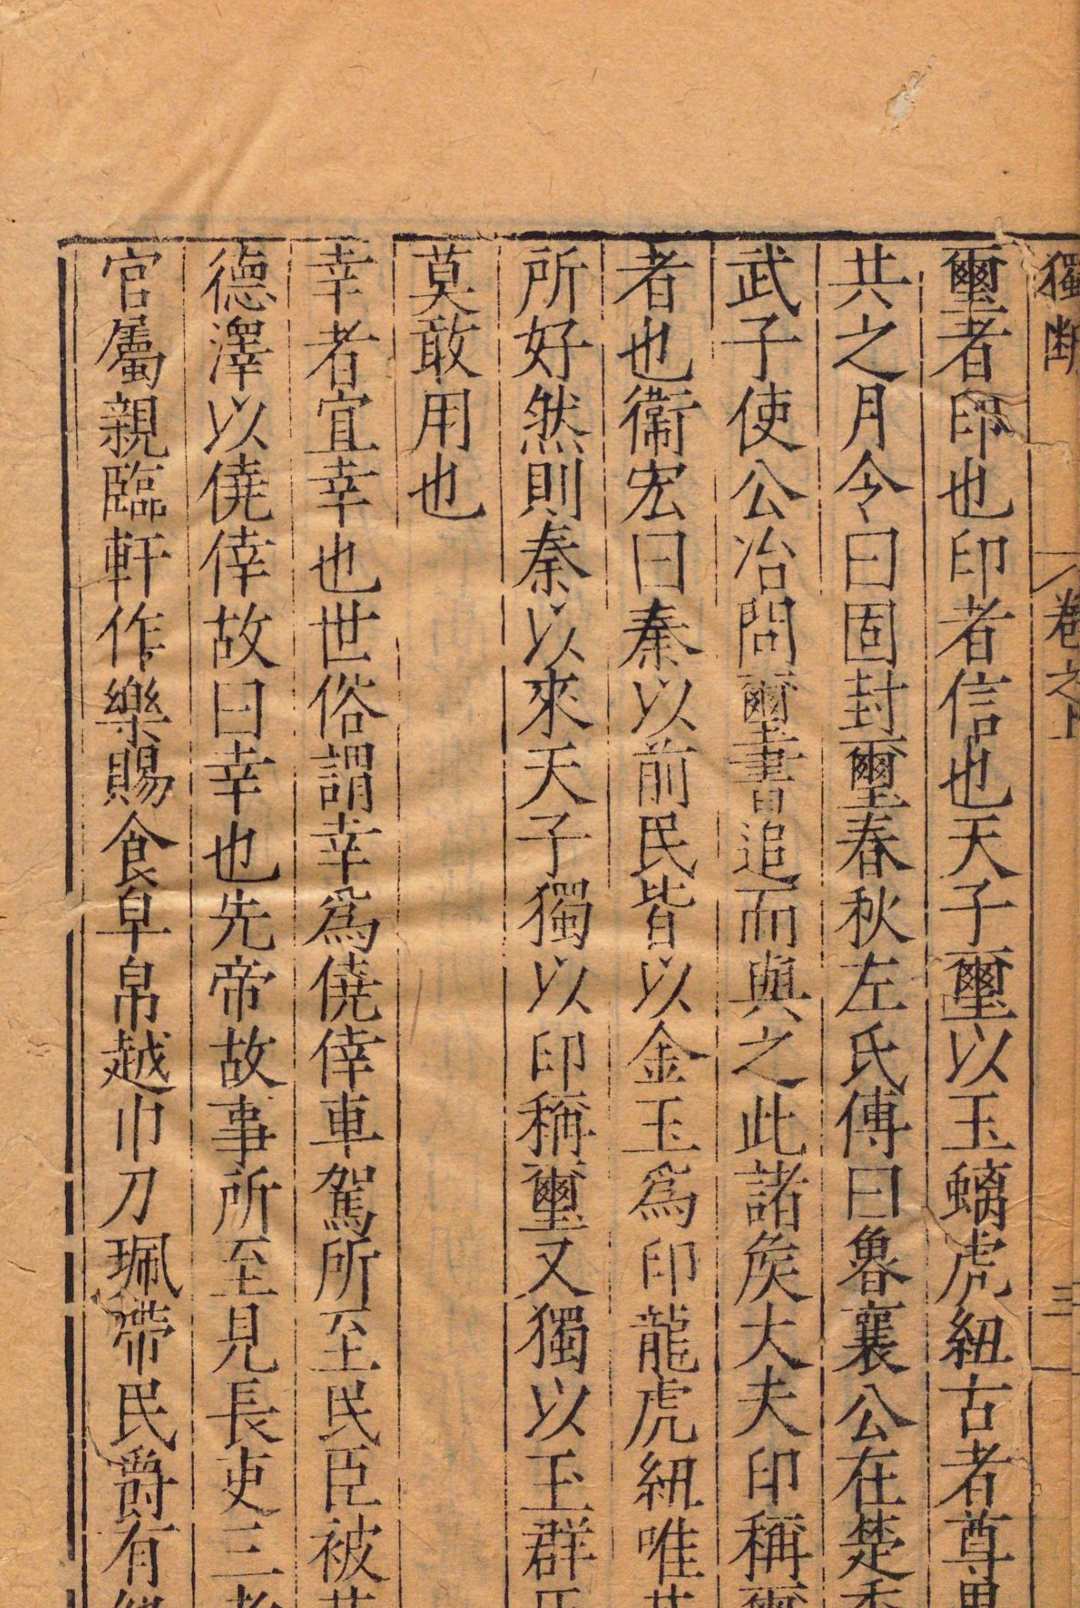 獨斷 卷之上 三
璽者印也印者信也天子璽以玉螭虎紐古者尊
共之月令曰固封璽春秋左氏傳曰魯襄公在楚
武子使公冶問璽書追而與之此諸矦大夫印稱
者也衞宏曰秦以前民皆以金玉爲印龍虎紐唯
所好然則秦以來天子獨以印稱璽又獨以玉群
莫敢用也
幸者宜幸也世俗謂幸爲僥倖車駕所至民臣被
德澤以僥倖故曰幸也先帝故事所至見長吏三
官屬親臨軒作樂賜食皁帛越巾刀珮帶民爵有